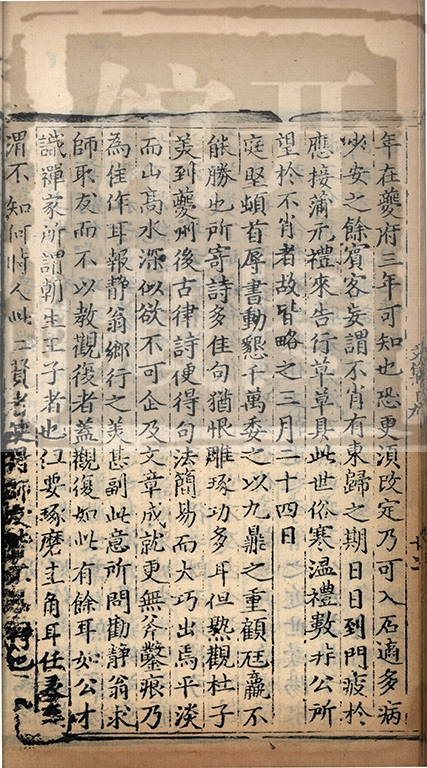 年在夔府三年可知也恐更湏改定乃可入石適多病
少安之餘賓客妄謂不肖有東歸之期日日到門疲於
應接蒲元禮來告行草草具此世俗寒溫禮數非公所
望於不肖者故皆略之三月二十四日
庭堅頓首辱書動懇千萬委之以九鼎之重顧尫羸不
能勝也所寄詩多佳句猶恨雕琢功多耳但熟觀杜子
美到夔州後古律詩便得句法簡易而大巧出焉平淡
而山髙水深似欲不可企及文章成就更無斧鑿痕乃
為佳作耳報靜翁鄉行之美甚副此意所問勸靜翁求
師取友而不以教觀復者蓋觀復如此有餘耳如公才
識禪家所謂朝生王子者也但要琢磨圭角耳任
渭不知何時人此二賢者